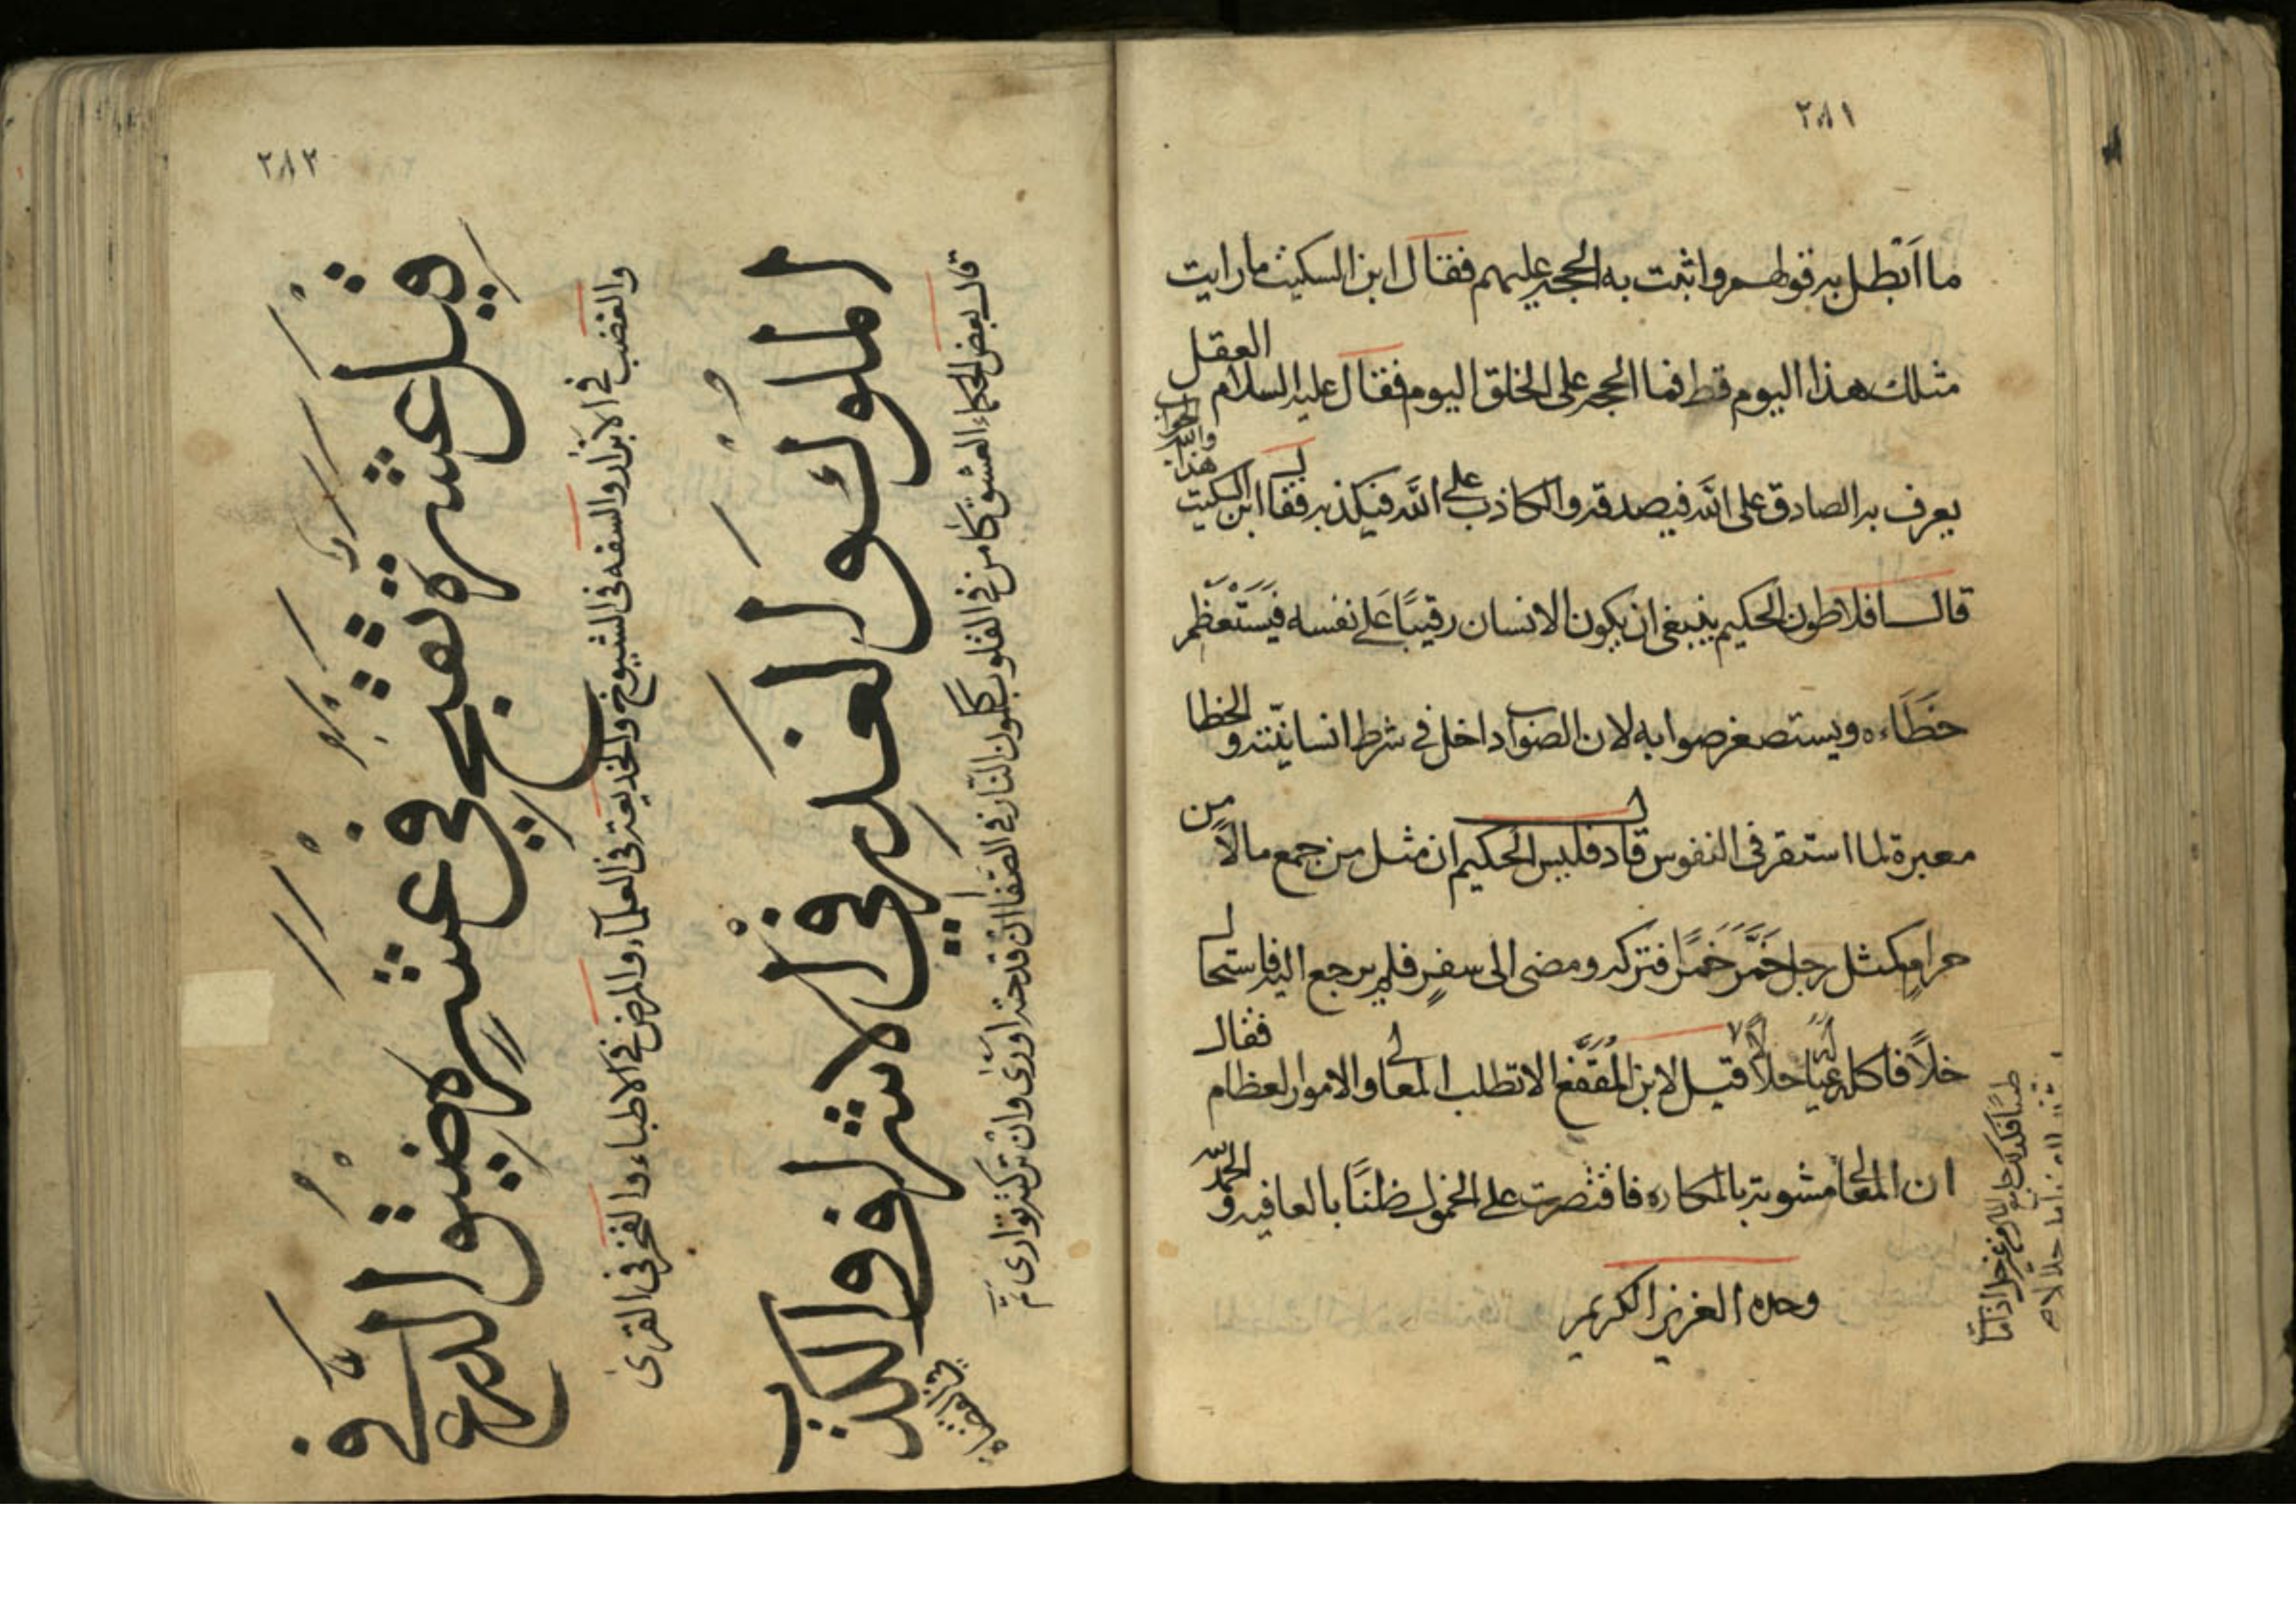 ٢٨١
ما ابطل به قولهم واثبت به الحجة عليهم فقال ابن السكيت ما رايت
مثلك هذا اليوم قط فما الحجة على الخلق اليوم فقال عليه السلام العقل
يعرف به الصادق على الله فيصدقه والكاذب على الله فيكذبه فقال ابن السكيت
هذا والله الجواب
قال افلاطون الحكيم ينبغي ان يكون الانسان رقيبًا على نفسه فيستعظم
خَطَاءه ويستصغر صوابه لان الصواب داخل في شرط انسانيته والخطا
معبرة لما استقر في النفوس قال دقليس الحكيم ان مثل من جمع مالًا من
حرامٍ كمثل رجل خَمَّرَ خمرًا فتركه ومضى الى سفرٍ فلم يرجع اليه فاستحال
خلاًّ فاكله غيره حلالاً قيل لابن المُقَفَّع الا تطلب المعالي والامور العظام فقال
ان المعالي مشوبة بالمكاره فاقتصرت على الخمول ظنًّا بالعافية والحمد لله
وحده العزيز الكريم
٢٨٣
قيل عشرة تقبح في عشرة ضيق الذرع في
الملوك والغدر في الاشراف والكذب
في القضاة
والغضب في الابرار والسفه في الشيوخ والخديعة في العلماء والمرض في الاطباء والفخر في القرى
قال بعض الحكماء العشق كامن في القلوب ككون النار في الصفا ان قدحته اورى وان تركته توارى تم